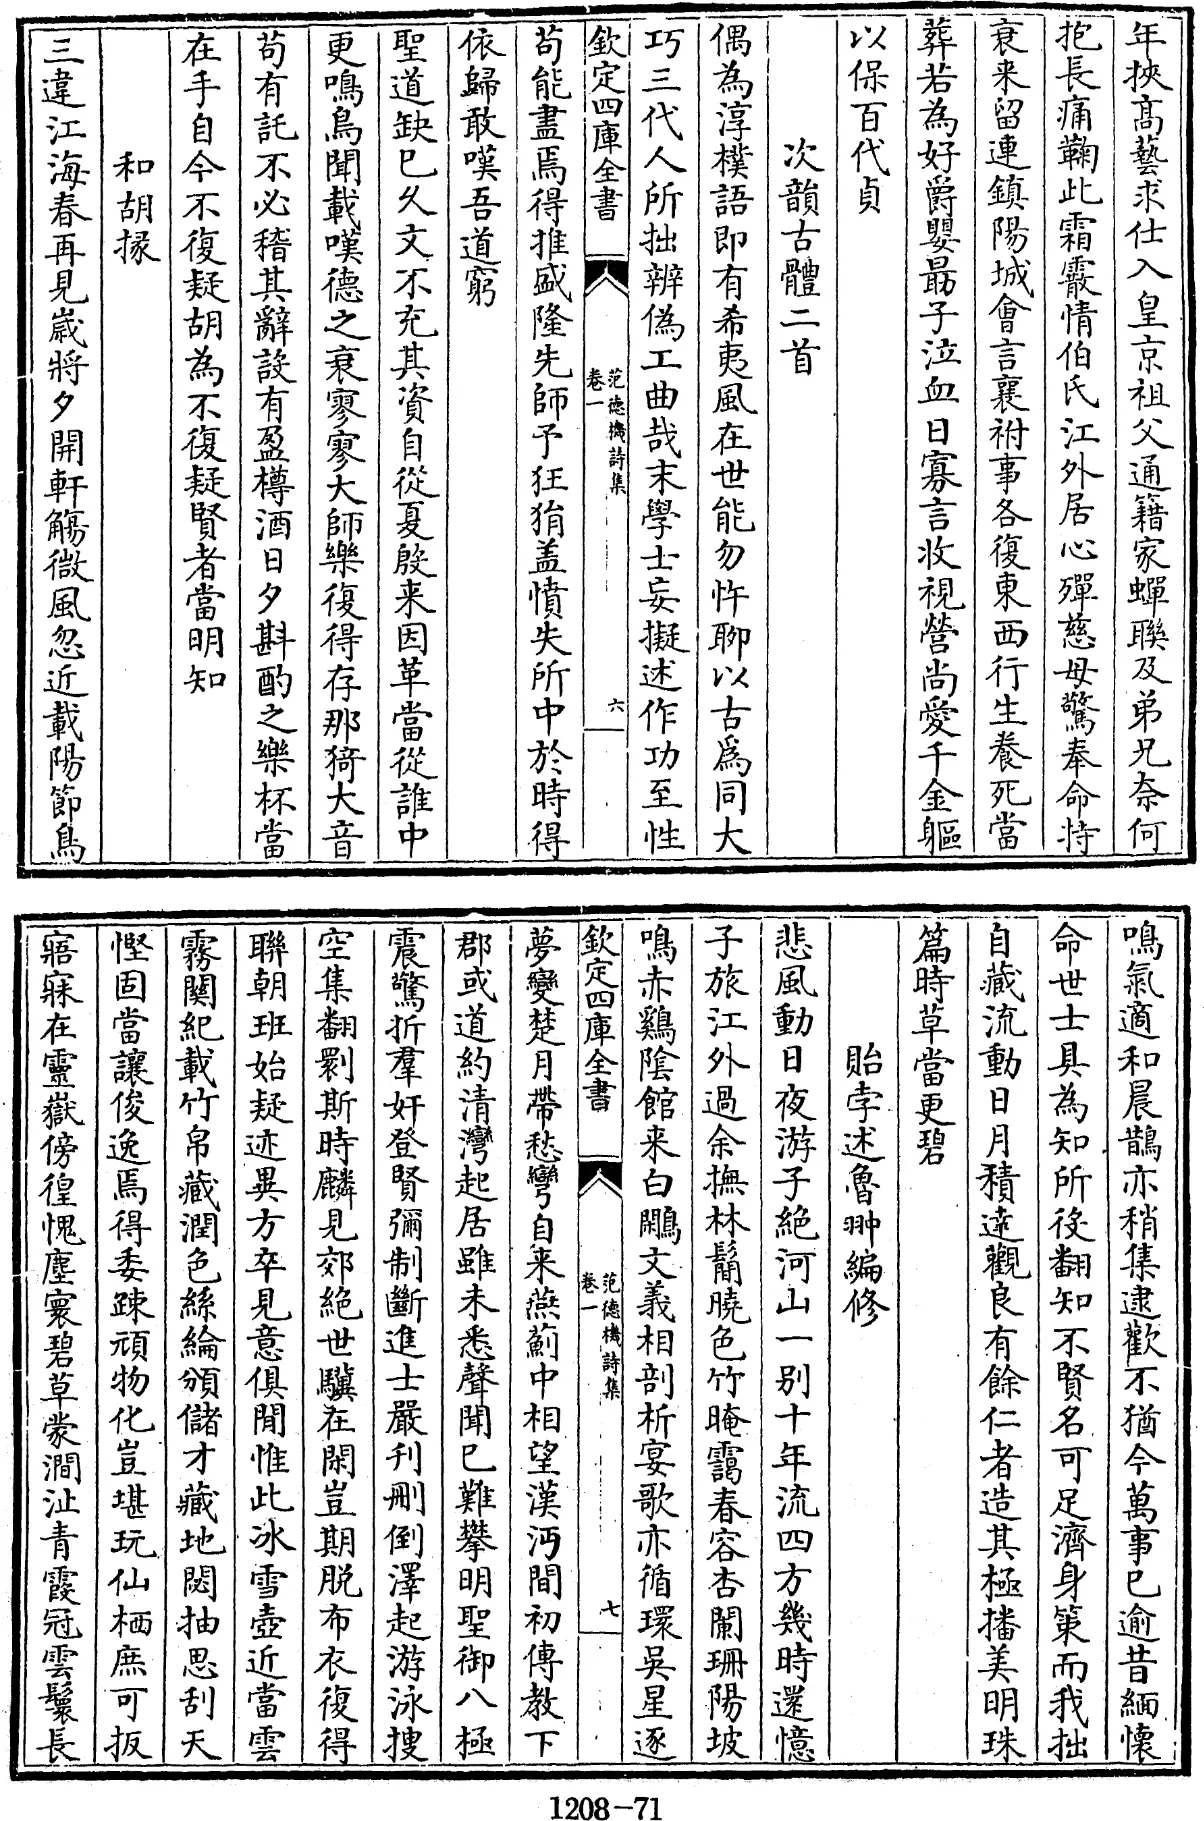 年挾高藝求仕入皇京祖父通籍家蟬聯及弟兄奈何
抱長痛鞠此霜霰情伯氏江外居心殫慈母驚奉命持
衰来留連鎮陽城會言襄祔事各復東西行生養死當
葬若為好爵嬰朂子泣血日寡言收視營尚愛千金軀
以保百代貞
次韻古體二首
偶為淳樸語即有希夷風在世能勿忤聊以古爲同大
巧三代人所拙辨偽工曲哉末學士妄擬述作功至性
欽定四庫全書
范德機詩集
卷一
六
苟能盡焉得推盛隆先師予狂狷盖憤失所中於時得
依歸敢嘆吾道窮
聖道缺已久文不充其資自從夏殷来因革當從誰中
更鳴鳥聞載嘆德之衰寥寥大師樂復得存那猗大音
苟有託不必稽其辭設有盈樽酒日夕斟酌之樂杯當
在手自今不復疑胡為不復疑賢者當明知
和胡掾
三違江海春再見嵗將夕開軒觴微風忽近載陽節鳥
鳴氣適和晨鵲亦稍集逮歡不猶今萬事已逾昔緬懷
命世士具為知所役翻知不賢名可足濟身策而我拙
自藏流動日月積逺觀良有餘仁者造其極播美明珠
篇時草當更碧
貽孛述魯翀編修
悲風動日夜游子絶河山一别十年流四方幾時還憶
子旅江外過余撫林鬅曉色竹晻靄春容杏闌珊陽坡
鳴赤鷄陰館来白鷳文義相剖析宴歌亦循環吳星逐
欽定四庫全書
范德機詩集
卷一
七
夢變楚月帶愁彎自来燕薊中相望漢沔間初傳教下
郡或道約清灣起居雖未悉聲聞已難攀明聖御八極
震驚折羣奸登賢彌制斷進士嚴刋刪倒澤起游泳搜
空集翻䍐斯時麟見郊絶世驥在閑豈期脱布衣復得
聯朝班始疑迹異方卒見意俱閒惟此冰雪壺近當雲
霧關紀載竹帛藏潤色絲綸頒儲才藏地閟抽思刮天
慳固當讓俊逸焉得委疎頑物化豈堪玩仙栖庶可扳
寤寐在靈嶽傍徨愧塵寰碧草蒙澗沚青霞冠雲鬟長
1208-71